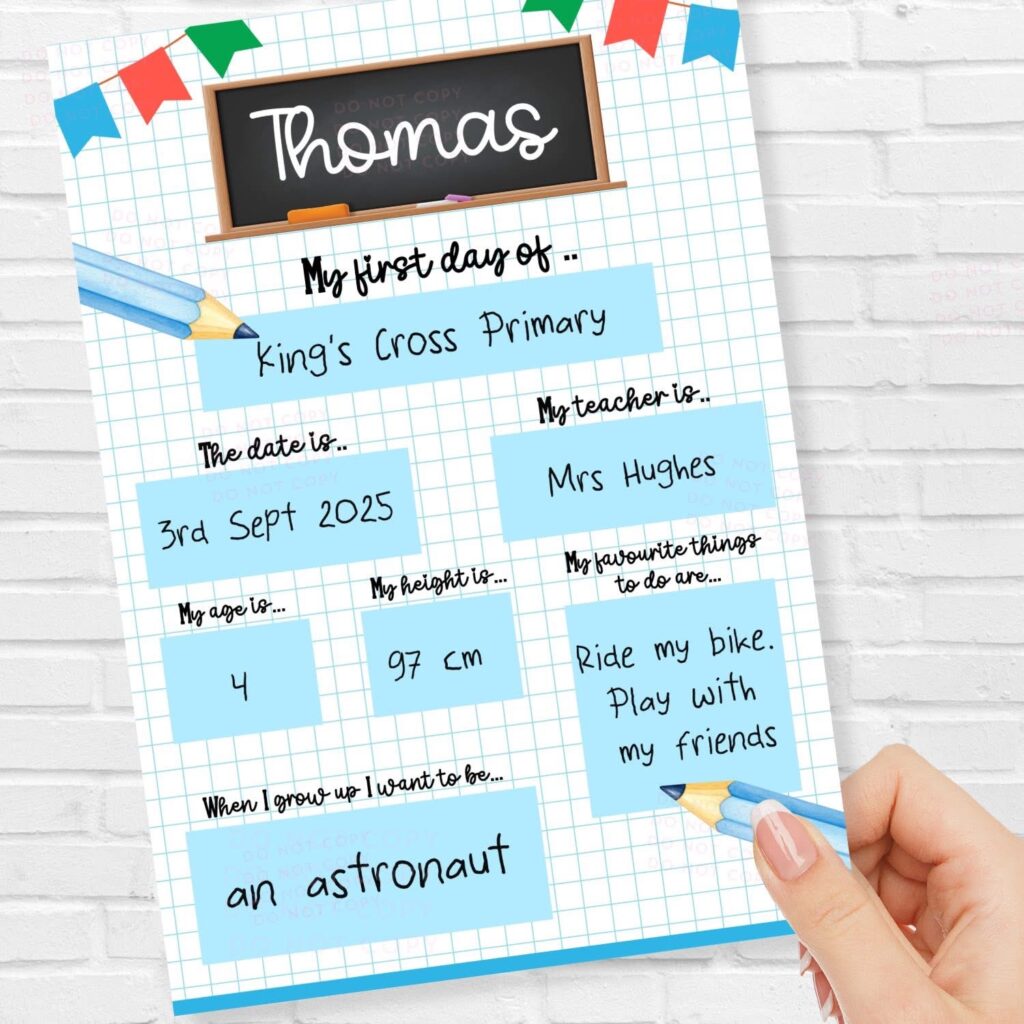 Thomas
My first day of ..
King's Cross Primary
The date is..
3rd Sept 2025
My teacher is..
Mrs Hughes
My age is...
4
My height is...
97 cm
My favourite things
to do are...
Ride my bike.
Play with
my friends
When I grow up I want to be...
an astronaut
DO NOT COPY
DO NOT COPY
DO NOT COPY